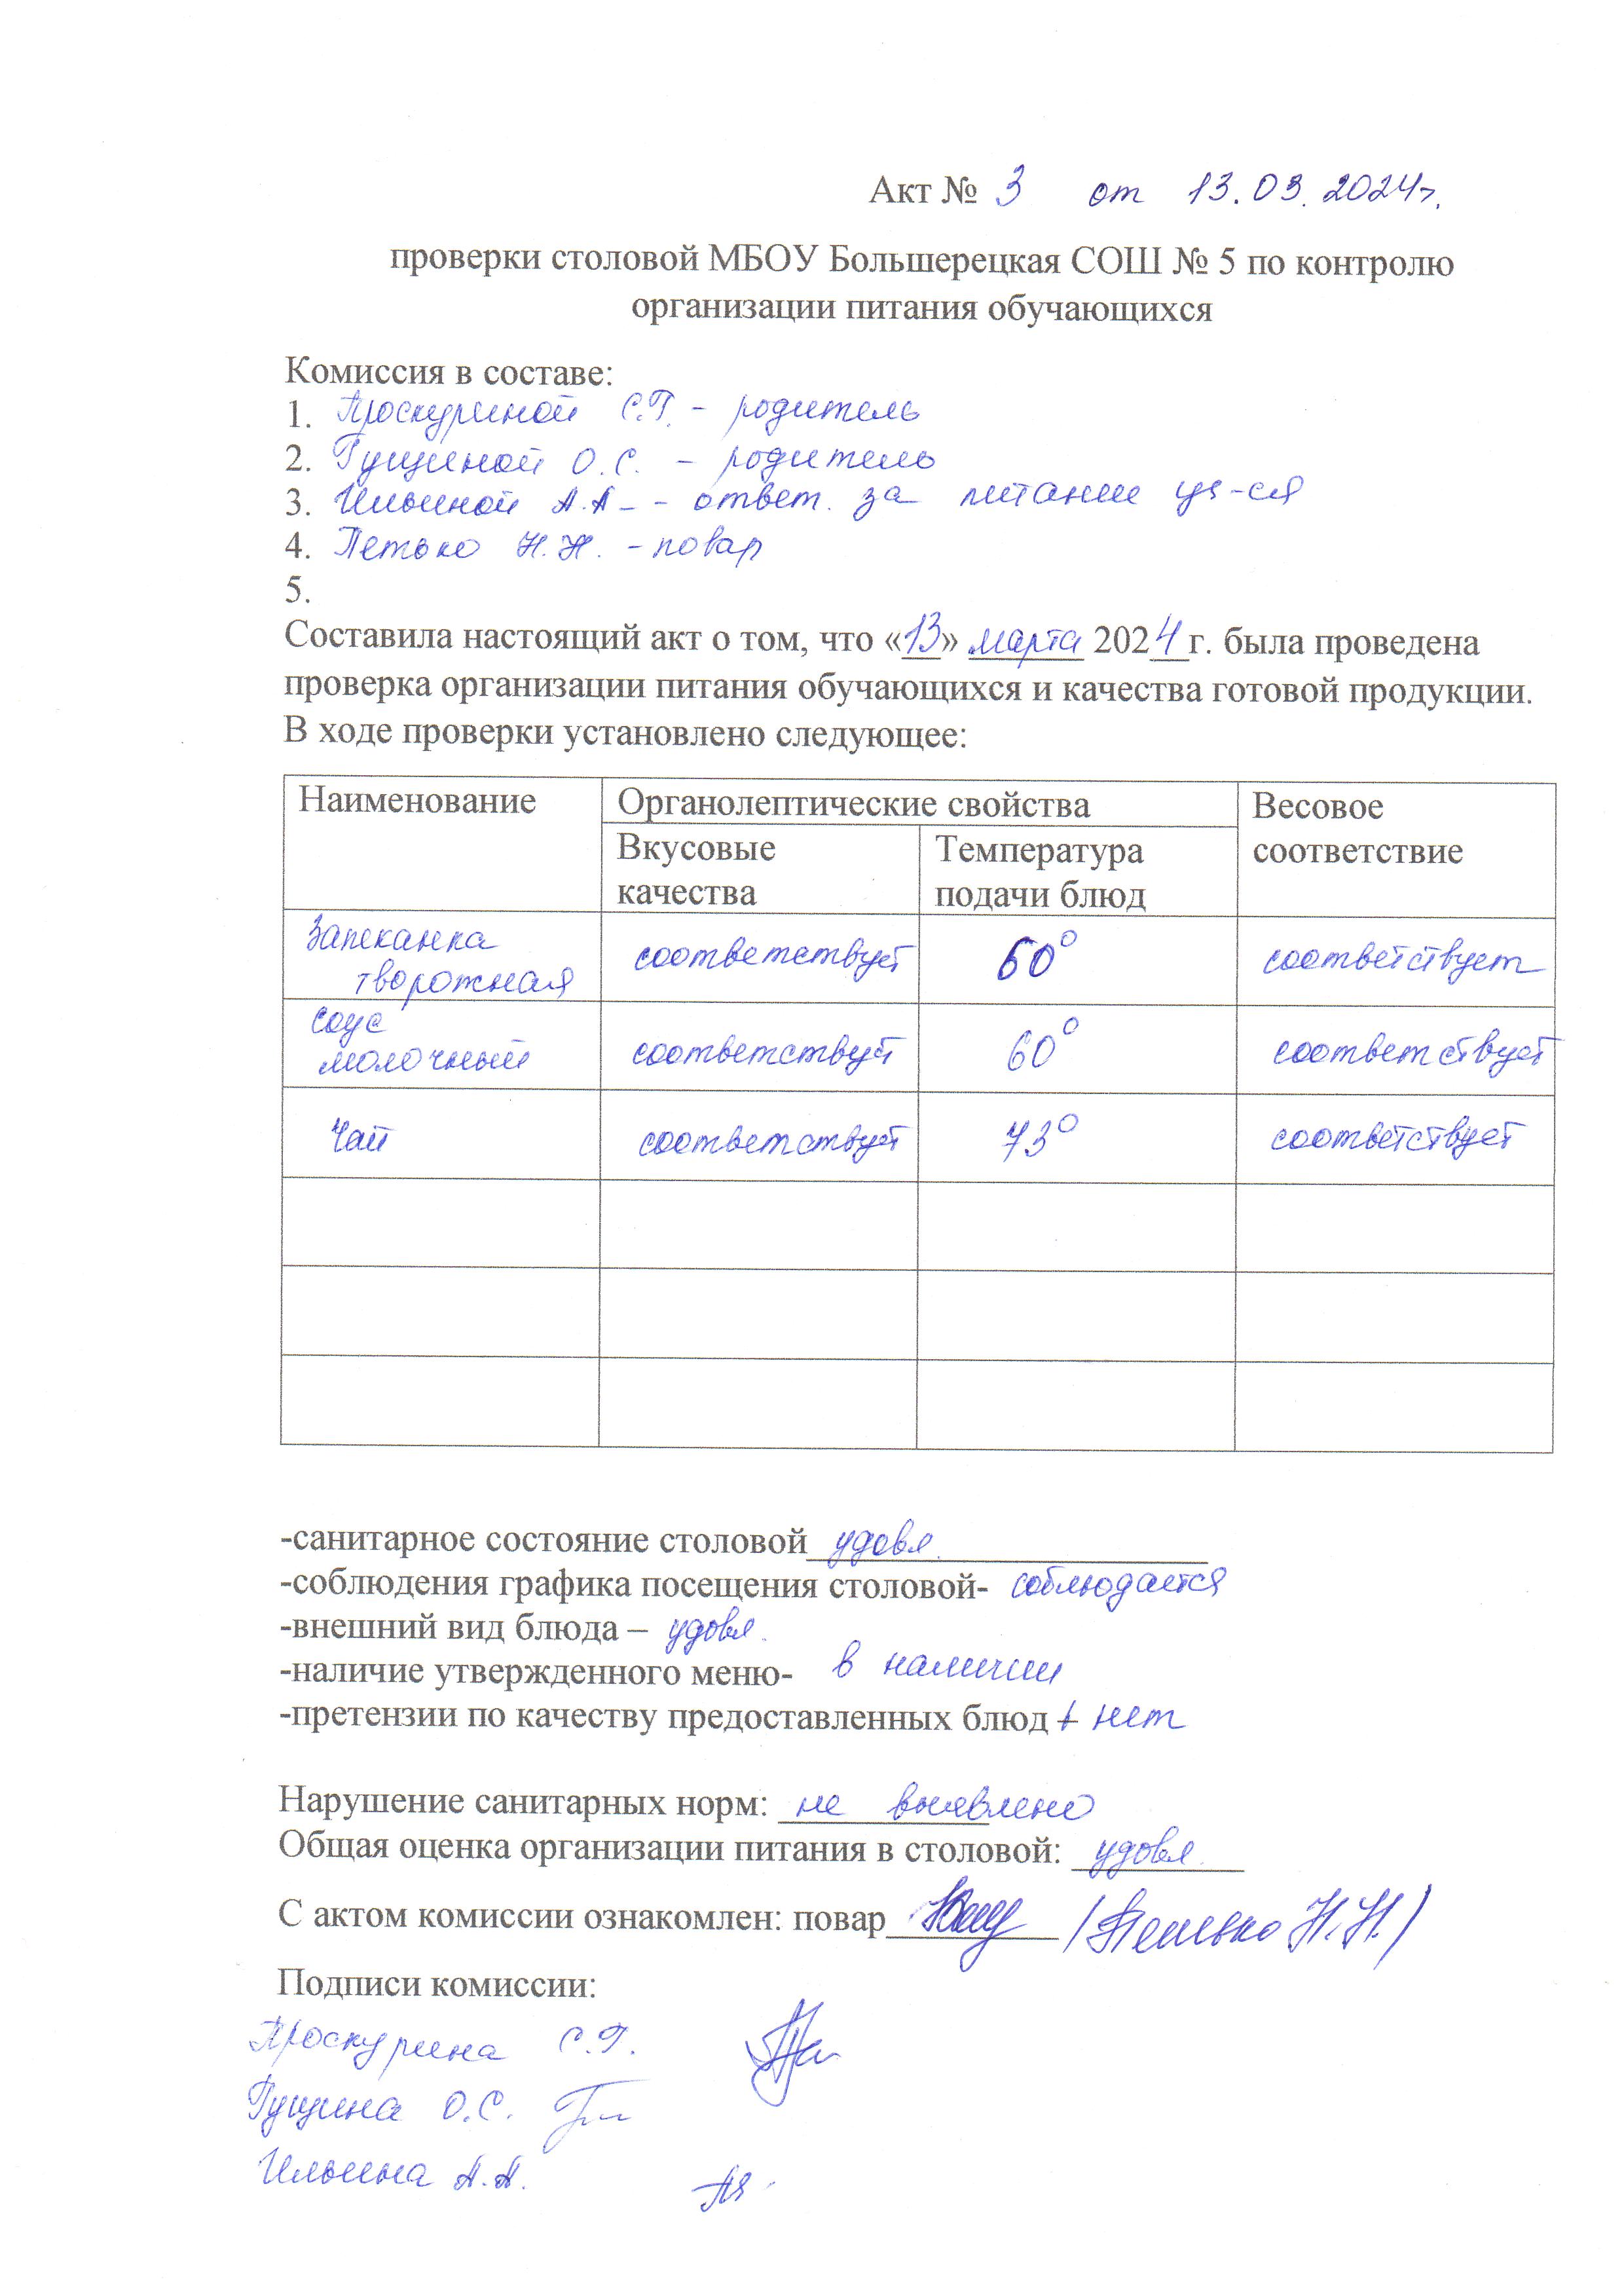 Акт № 3 от 13.03.2024г.
проверки столовой МБОУ Большерецкая СОШ № 5 по контролю
организации питания обучающихся
Комиссия в составе:
1. Проскуриной С.Г. - родитель
2. Гущиной О.С. - родитель
3. Ильиной А.А. - ответ. за питание уч-ся
4. Петько Н.Н. - повар
5.
Составила настоящий акт о том, что «13» марта 2024 г. была проведена
проверка организации питания обучающихся и качества готовой продукции.
В ходе проверки установлено следующее:
Наименование Органолептические свойства Весовое соответствие
Вкусовые качества Температура подачи блюд
Запеканка творожная соответствует 60° соответствует
соус молочный соответствует 60° соответствует
чай соответствует 73° соответствует
-санитарное состояние столовой удовл.
-соблюдения графика посещения столовой- соблюдается
-внешний вид блюда – удовл.
-наличие утвержденного меню- в наличии
-претензии по качеству предоставленных блюд – нет
Нарушение санитарных норм: не выявлено
Общая оценка организации питания в столовой: удовл.
С актом комиссии ознакомлен: повар /Петько Н.Н./
Подписи комиссии:
Проскурина С.Г.
Гущина О.С.
Ильина А.А.